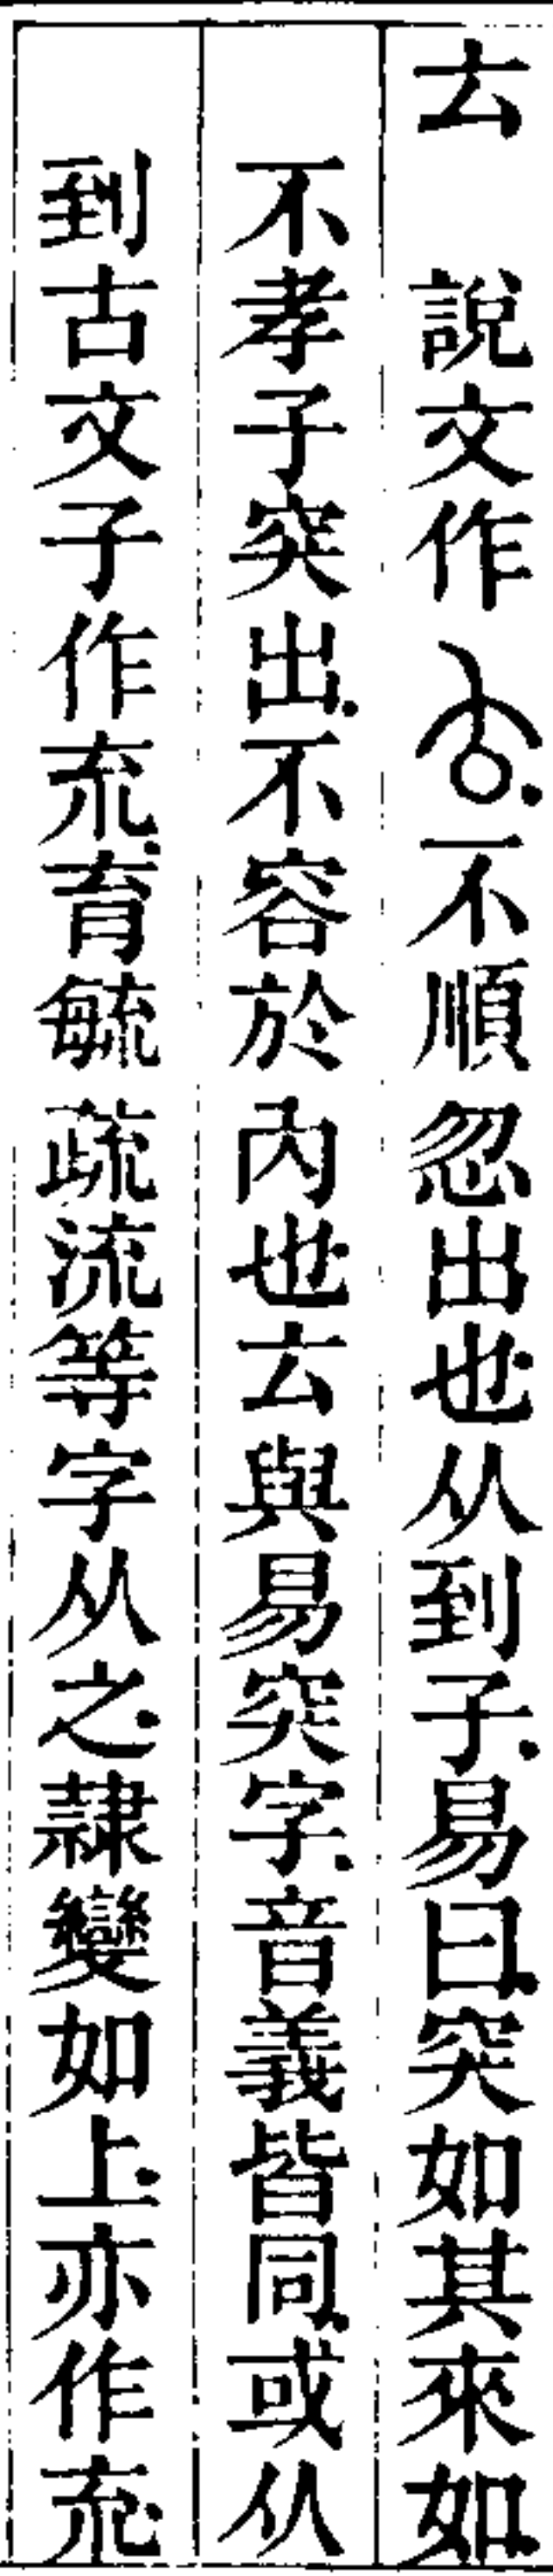 𠫓　說文作𠫓.不順忽出也.从到子.易曰.突如其來如.
不孝子突出.不容於內也.𠫓與易突字.音義皆同.或从
到古文子作㐬.育毓疏流等字从之.隸變如上.亦作㐬.